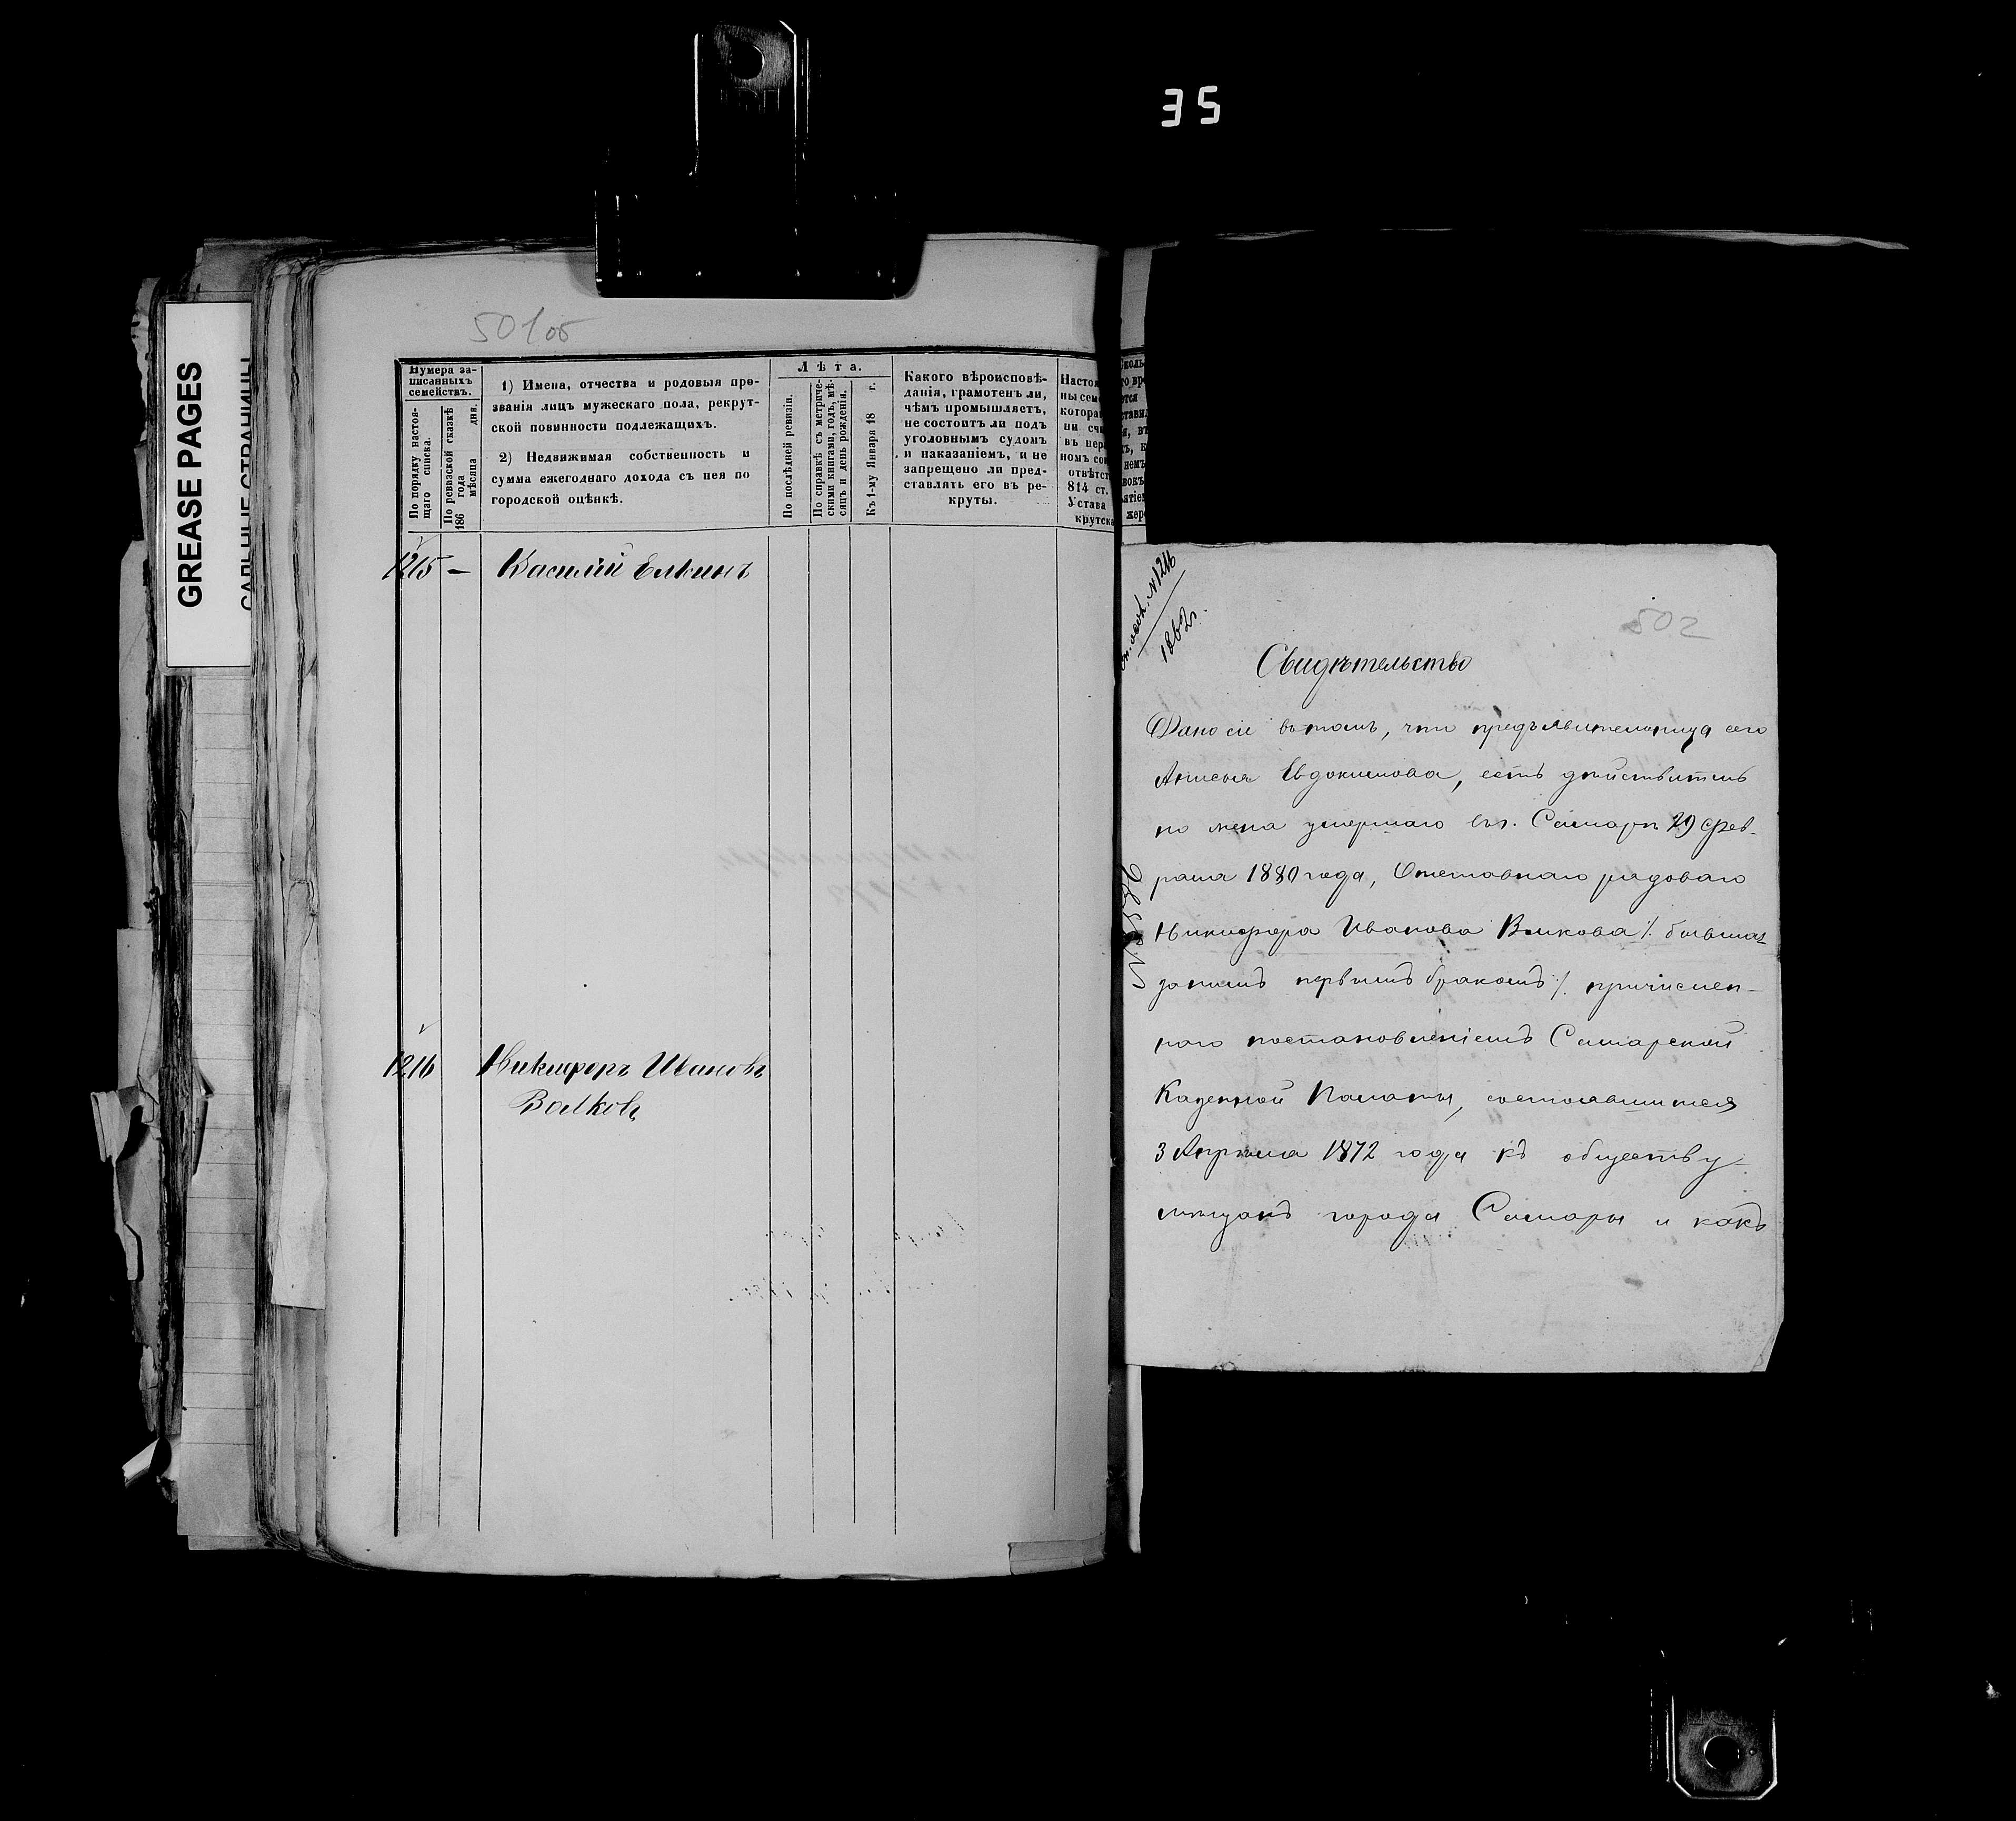 35
GREASE PAGES
САЛЬНЫЕ СТРАНИЦЫ
501об
Нумера записанныхъ семействъ.
По порядку настоящаго списка.
По ревизской сказкѣ 186 года мѣсяца дня.
1) Имена, отчества и родовыя прозванія лицъ мужескаго пола, рекрутской повинности подлежащихъ.
2) Недвижимая собственность и сумма ежегоднаго дохода съ нея по городской оцѣнкѣ.
Лѣта.
По послѣдней ревизіи.
По справкѣ съ метрическими книгами, годъ, мѣсяцъ и день рожденія.
Къ 1-му Января 18 г.
Какого вѣроисповѣданія, грамотенъ ли, чѣмъ промышляетъ, не состоитъ ли подъ уголовнымъ судомъ и наказаніемъ, и не запрещено ли представлять его въ рекруты.
Настоя
ны сем
котора
ни счи
въ пер
номъ со
отвѣтст
814 ст.
Устава
крутска
1215 — Василій Елкинъ
1216 Никифоръ Ивановъ
Волковъ
№1216
1862г.
502
Свидѣтельство
Дано сіе въ томъ, что предъявительница сего
Анисья Евдокимова, есть дѣйствитель
но жена умершаго въ г. Самарѣ 29 Фев-
раля 1880 года, Отставнаго рядоваго
Никифора Иванова Волкова /. бывшаго
занимъ первымъ бракомъ /. причислен-
наго постановленіемъ Самарской
Казенной Палаты, состоявшимся
3 Апрѣля 1872 года къ обществу
мѣщанъ города Самары и какъ